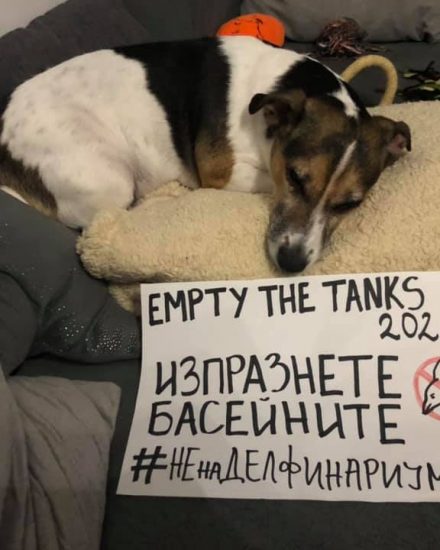 EMPTY THE TANKS
202
ИЗПРАЗНЕТЕ
БАСЕЙНИТЕ
#НЕнаДЕЛФИНАРИУМ